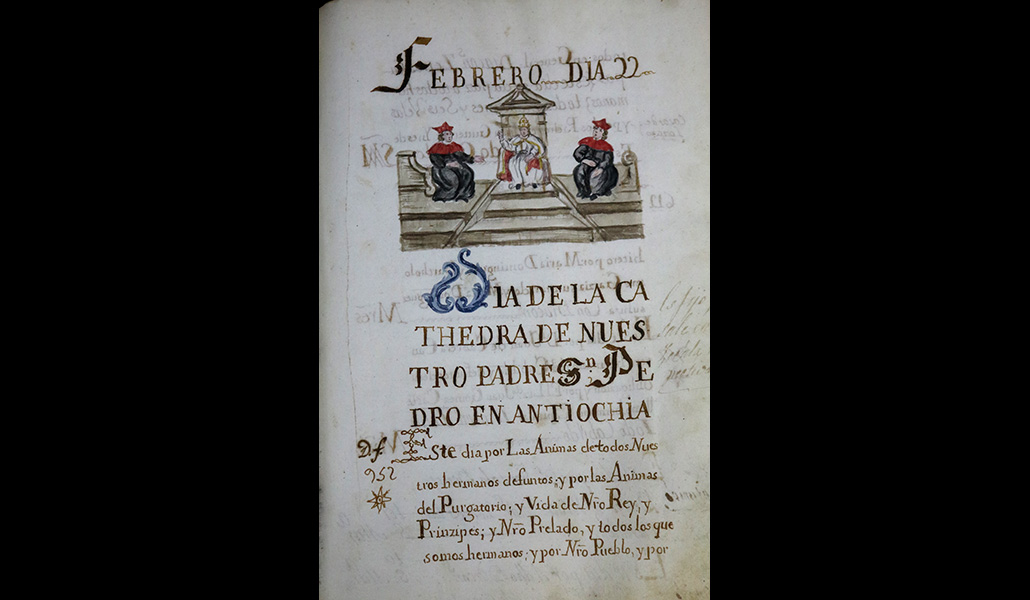 FEBRERO DIA 22
DIA DE LA CA
THEDRA DE NUES
TRO PADRE Sn. PE
DRO EN ANTIOCHIA
Df
952
Este dia por Las Animas de todos Nues
tros hermanos defuntos; y por las Animas
del Purgatorio; y Vida de Nrõ Rey, y
Prinzipes; y Nrõ Prelado, y todos los que
somos hermanos; y por Nrõ Pueblo, y por